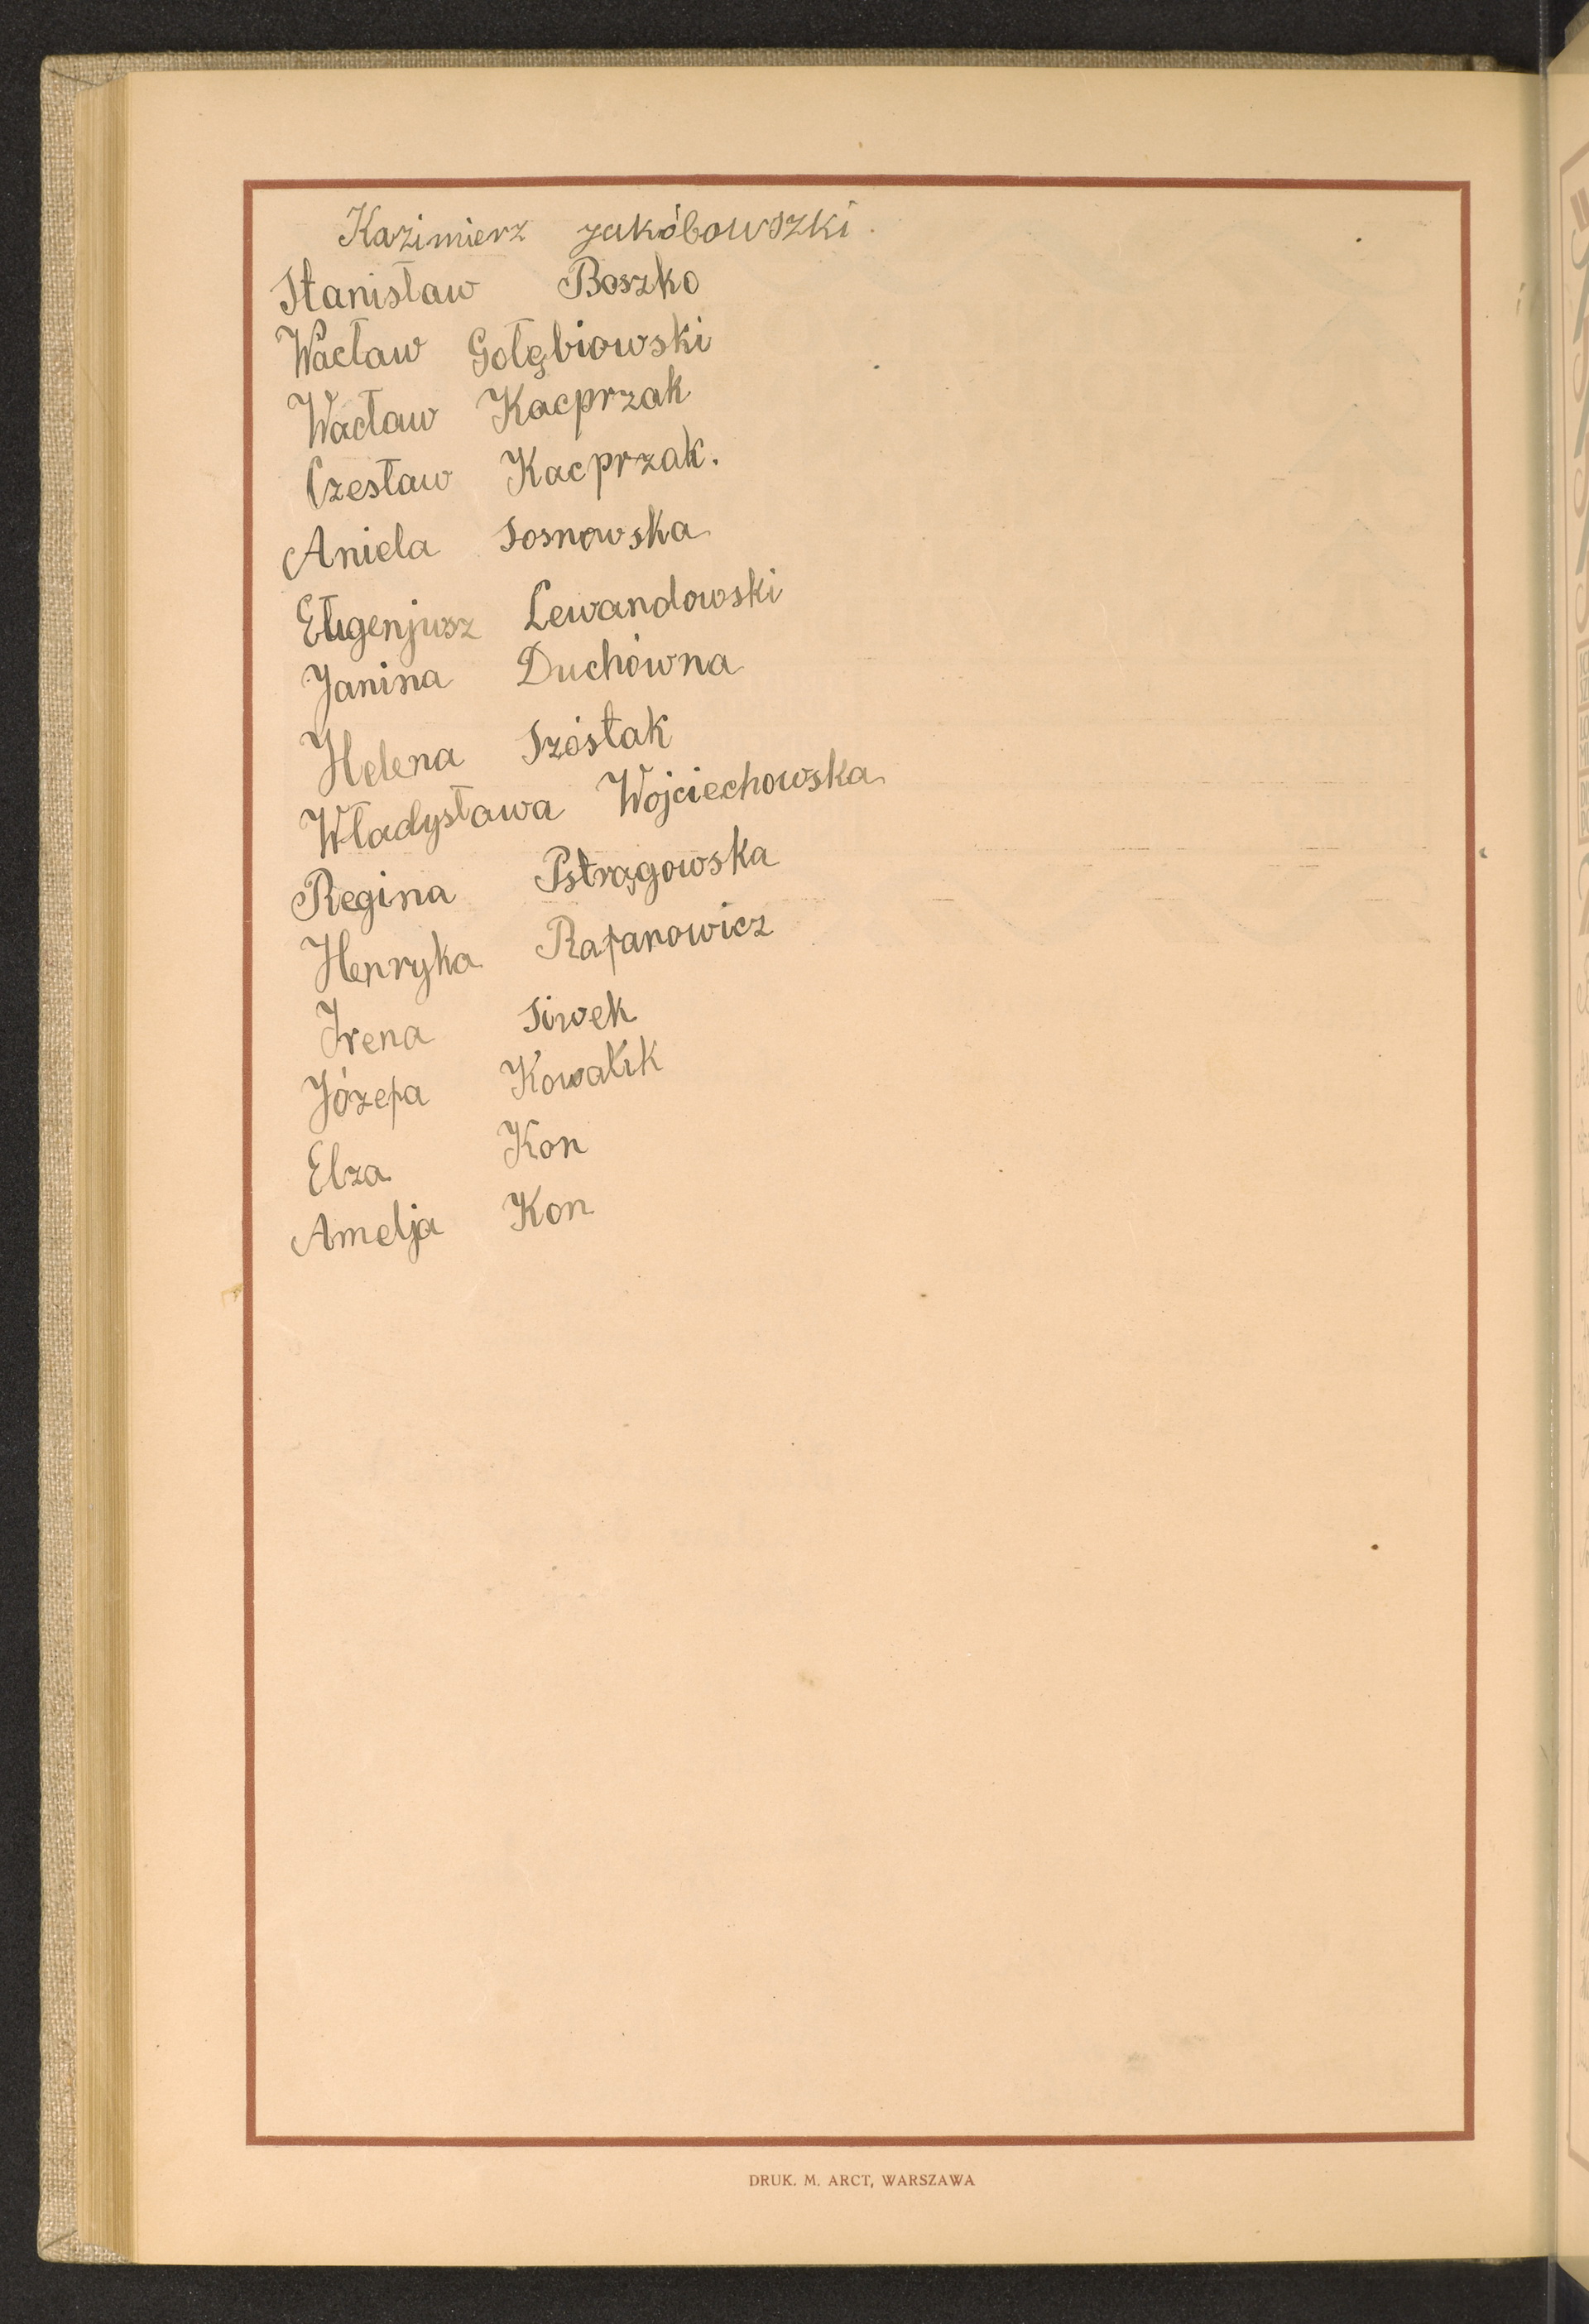 Kazimierz Jakóbowszki.
Stanisław Boszko
Wacław Gołębiowski
Wacław Kacprzak
Czesław Kacprzak.
Aniela Sosnowska
Eugenjusz Lewandowski
Janina Duchówna
Helena Szóstak
Władysława Wojciechowska
Regina Pstrągowska
Henryka Rafanowicz
Irena Siwek
Józefa Kowalik
Elza Kon
Amelja Kon
DRUK. M. ARCT, WARSZAWA